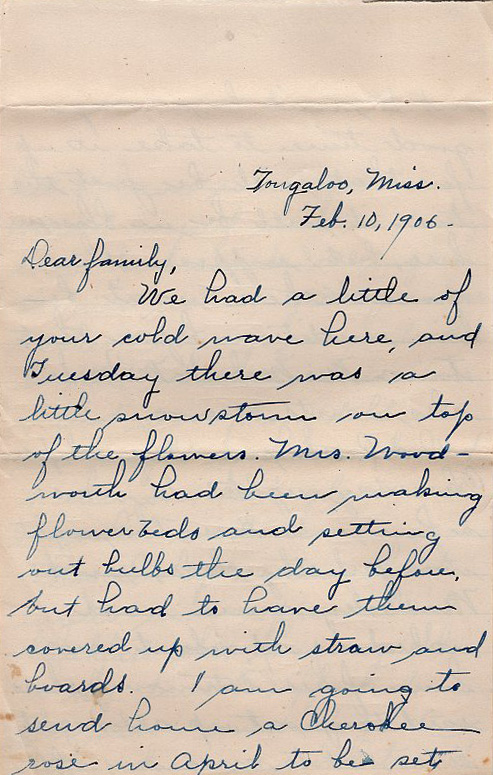 Tougaloo, Miss.
Feb. 10, 1906.
Dear family,
We had a little of
your cold wave here, and
Tuesday there was a
little snowstorm on top
of the flowers. Mrs. Wood-
worth had been making
flower beds and setting
out bulbs the day before,
but had to have them
covered up with straw and
boards. I am going to
send home a Cherokee
rose in April to be set